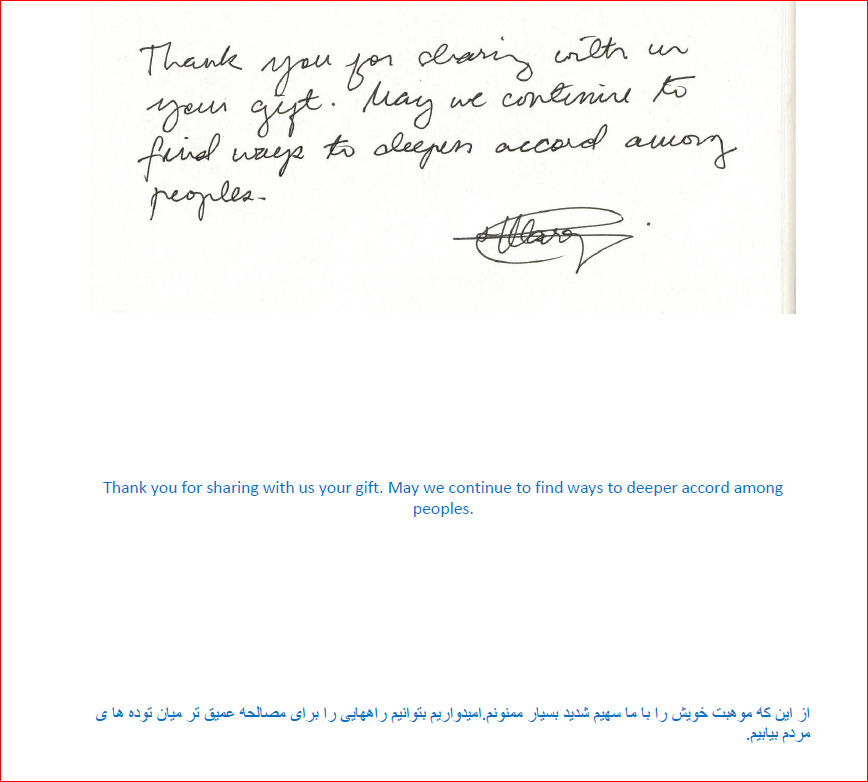 Thank you for sharing with us
your gift. May we continue to
find ways to deepen accord among
peoples.
Thank you for sharing with us your gift. May we continue to find ways to deeper accord among
peoples.
از این که موهبت خویش را با ما سهیم شدید بسیار ممنونم.امیدواریم بتوانیم راههایی را برای مصالحه عمیق تر میان توده ها ی
مردم بیابیم.